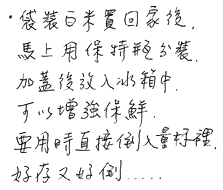 ·袋裝白米買回家後,
馬上用保特瓶分裝.
加蓋後放入冰箱中.
可以增強保鮮.
要用時直接倒入量杯裡.
好存又好倒.....